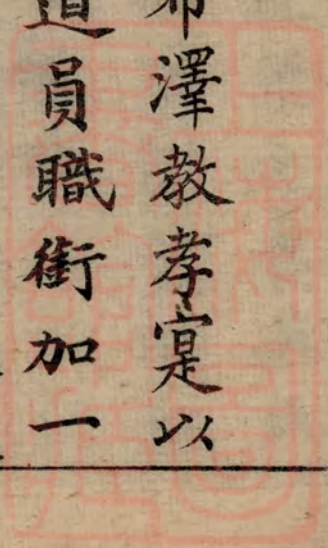 布澤教孝寔以
道員職銜加一